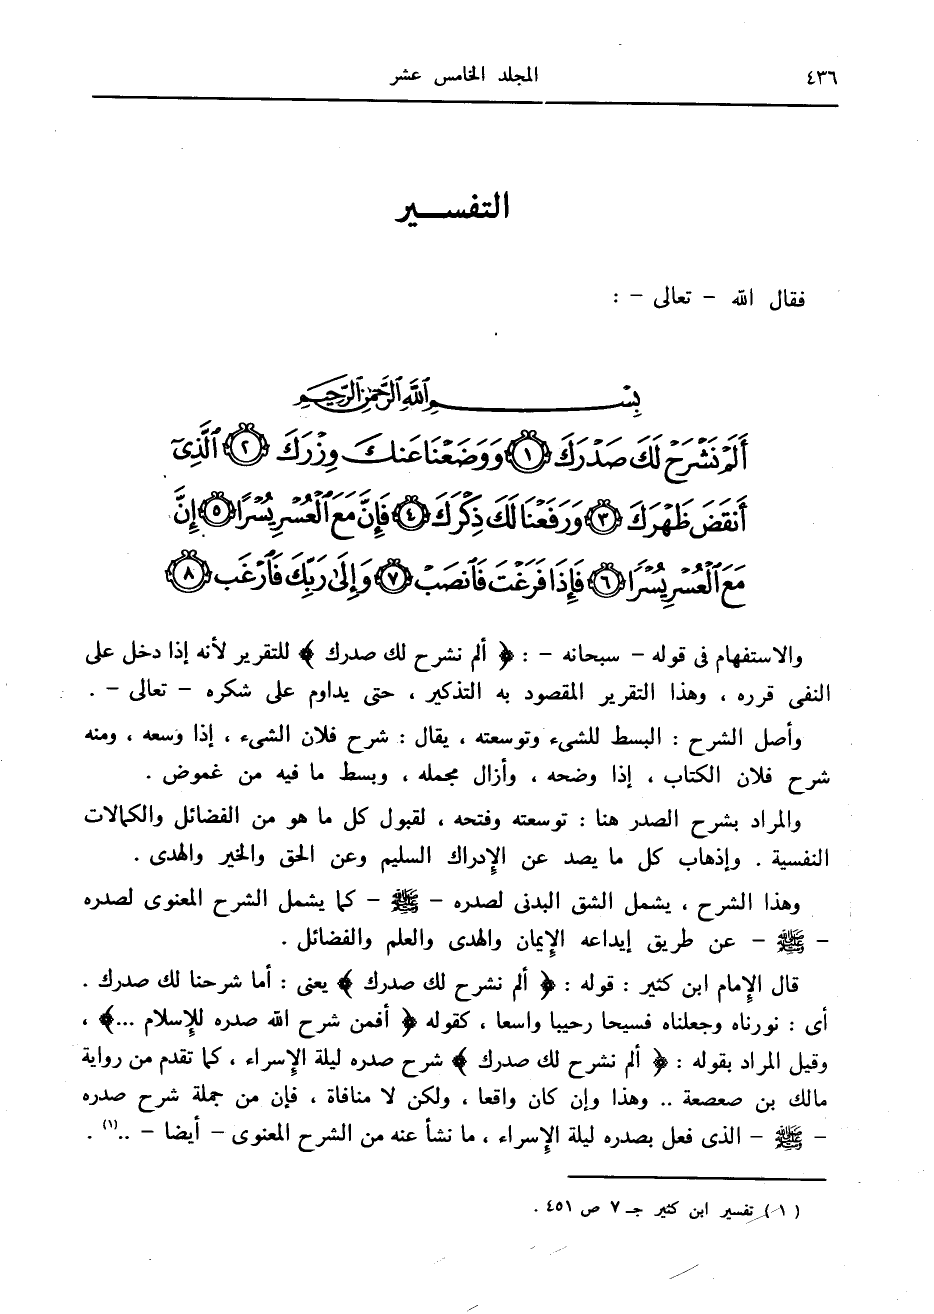 ٤٣٦
المجلد الخامس عشر
التفسـير
فقال الله – تعالى – :
بِسْمِ ٱللَّهِ ٱلرَّحْمَٰنِ ٱلرَّحِيمِ
أَلَمْ نَشْرَحْ لَكَ صَدْرَكَ ﴿١﴾ وَوَضَعْنَا عَنكَ وِزْرَكَ ﴿٢﴾ ٱلَّذِىٓ
أَنقَضَ ظَهْرَكَ ﴿٣﴾ وَرَفَعْنَا لَكَ ذِكْرَكَ ﴿٤﴾ فَإِنَّ مَعَ ٱلْعُسْرِ يُسْرًا ﴿٥﴾ إِنَّ
مَعَ ٱلْعُسْرِ يُسْرًا ﴿٦﴾ فَإِذَا فَرَغْتَ فَٱنصَبْ ﴿٧﴾ وَإِلَىٰ رَبِّكَ فَٱرْغَب ﴿٨﴾
والاستفهام فى قوله – سبحانه – : ﴿ ألم نشرح لك صدرك ﴾ للتقرير لأنه إذا دخل على
النفى قرره ، وهذا التقرير المقصود به التذكير ، حتى يداوم على شكره – تعالى – .
وأصل الشرح : البسط للشىء وتوسعته ، يقال : شرح فلان الشىء ، إذا وسعه ، ومنه
شرح فلان الكتاب ، إذا وضحه ، وأزال مجمله ، وبسط ما فيه من غموض .
والمراد بشرح الصدر هنا : توسعته وفتحه ، لقبول كل ما هو من الفضائل والكمالات
النفسية . وإذهاب كل ما يصد عن الإدراك السليم وعن الحق والخير والهدى .
وهذا الشرح ، يشمل الشق البدنى لصدره – ﷺ – كما يشمل الشرح المعنوى لصدره
– ﷺ – عن طريق إيداعه الإيمان والهدى والعلم والفضائل .
قال الإمام ابن كثير : قوله : ﴿ ألم نشرح لك صدرك ﴾ يعنى : أما شرحنا لك صدرك .
أى : نورناه وجعلناه فسيحا رحيبا واسعا ، كقوله ﴿ أفمن شرح الله صدره للإسلام ...﴾ ،
وقيل المراد بقوله : ﴿ ألم نشرح لك صدرك ﴾ شرح صدره ليلة الإسراء ، كما تقدم من رواية
مالك بن صعصعة .. وهذا وإن كان واقعا ، ولكن لا منافاة ، فإن من جملة شرح صدره
– ﷺ – الذى فعل بصدره ليلة الإسراء ، ما نشأ عنه من الشرح المعنوى – أيضا – ..(١) .
( ١ ) تفسير ابن كثير جـ ٧ ص ٤٥١ .